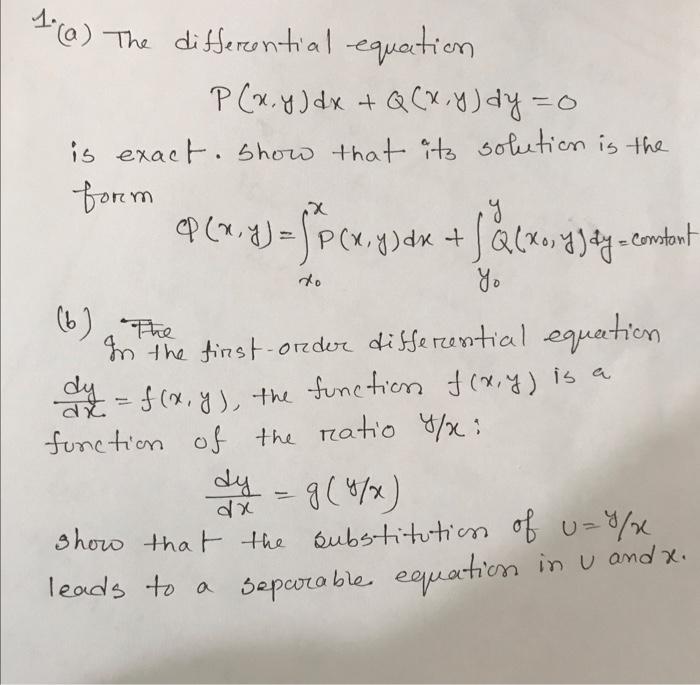 1. (a) The differential equation
P(x,y)dx + Q(x,y)dy = 0
is exact. Show that its solution is the
form
φ(x,y) = ∫_{x₀}^{x} P(x,y)dx + ∫_{y₀}^{y} Q(x₀,y)dy = constant
(b) The
In the first-order differential equation
dy/dx = f(x,y), the function f(x,y) is a
function of the ratio y/x:
dy/dx = g(y/x)
show that the substitution of u = y/x
leads to a separable equation in u and x.